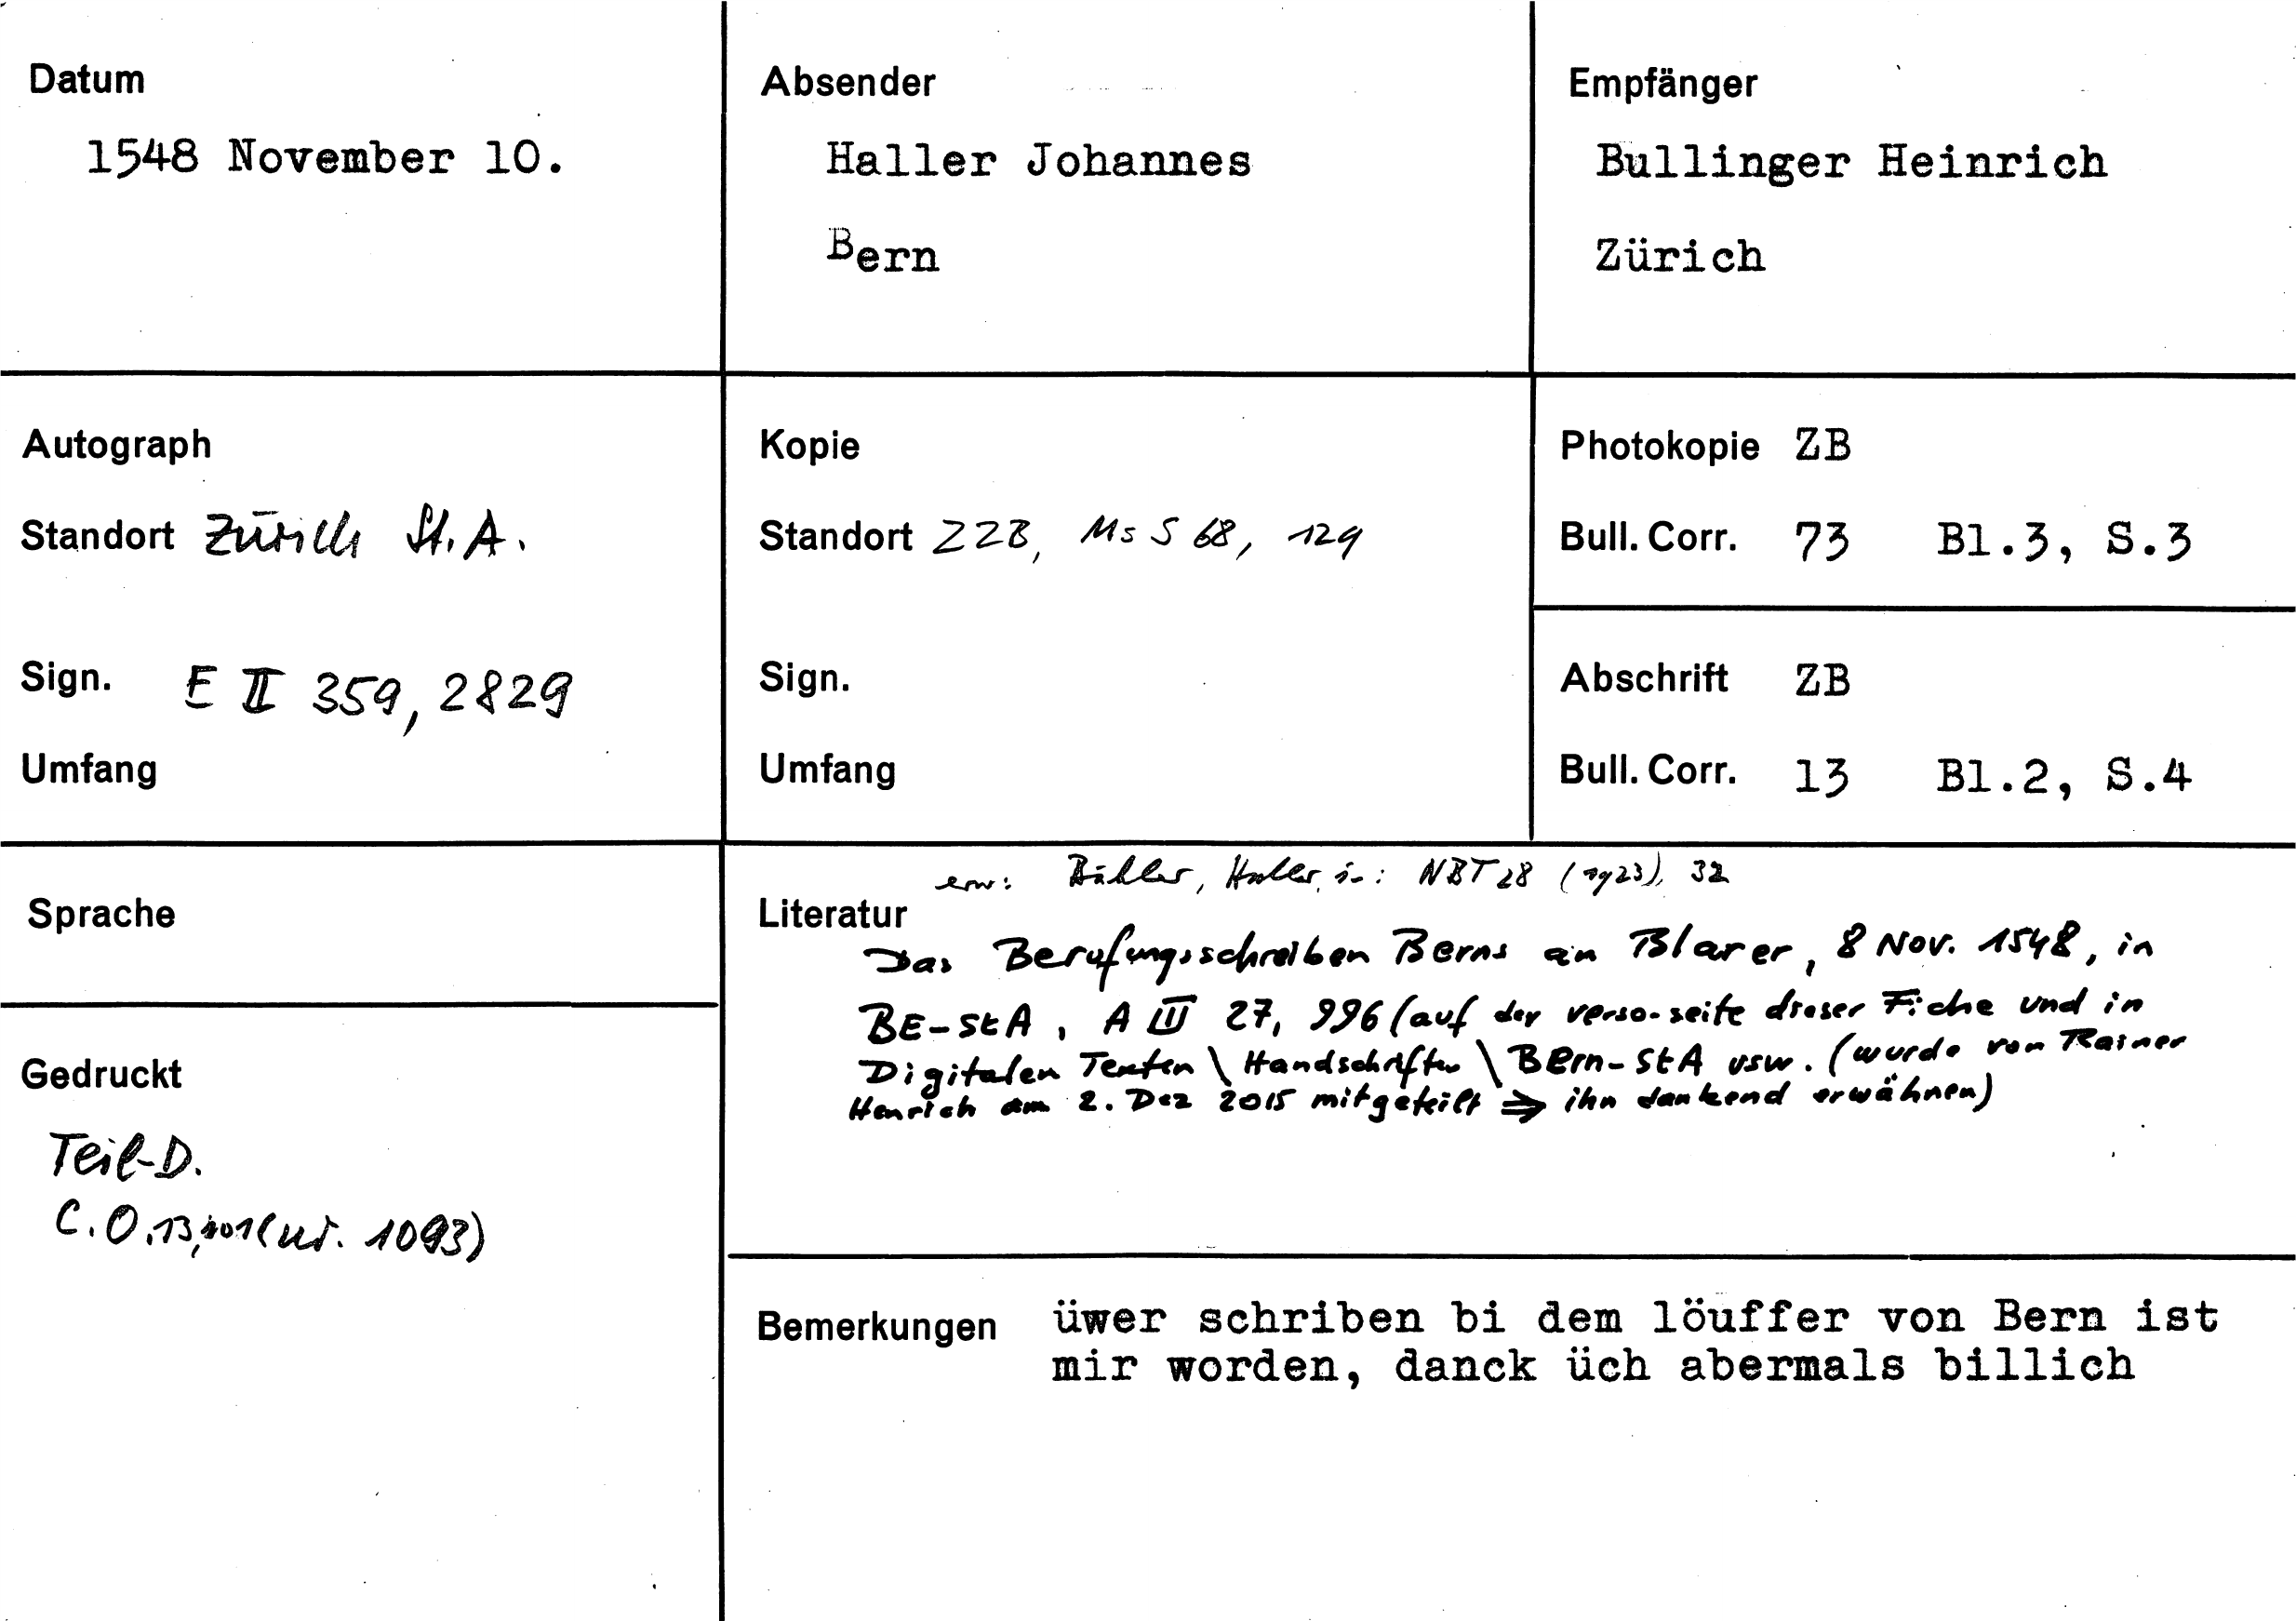 Datum
1548 November 10.
Absender
Haller Johannes
Bern
Empfänger
Bullinger Heinrich
Zürich
Autograph
Standort Zürich St.A.
Sign. E II 359, 2829
Umfang
Kopie
Standort ZZB, Ms S 68, 129
Sign.
Umfang
Photokopie ZB
Bull. Corr. 73 Bl.3, S.3
Abschrift ZB
Bull. Corr. 13 Bl.2, S.4
Sprache
Gedruckt
Teil-D.
C.O.13,101(nr. 1093)
erw: Bähler, Haller, in: NBT 28 (1923), 32
Literatur
Das Berufungsschreiben Berns an Blarer, 8 Nov. 1548, in
BE-StA, A III 27, 996 (auf der verso-seite dieser Fiche und in
Digitalen Texten \ Handschriften \ BErn-StA usw. (wurde von Rainer
Henrich am 2. Dez 2015 mitgeteilt ⇒ ihn dankend erwähnen)
Bemerkungen üwer schriben bi dem löuffer von Bern ist
mir worden, danck üch abermals billich